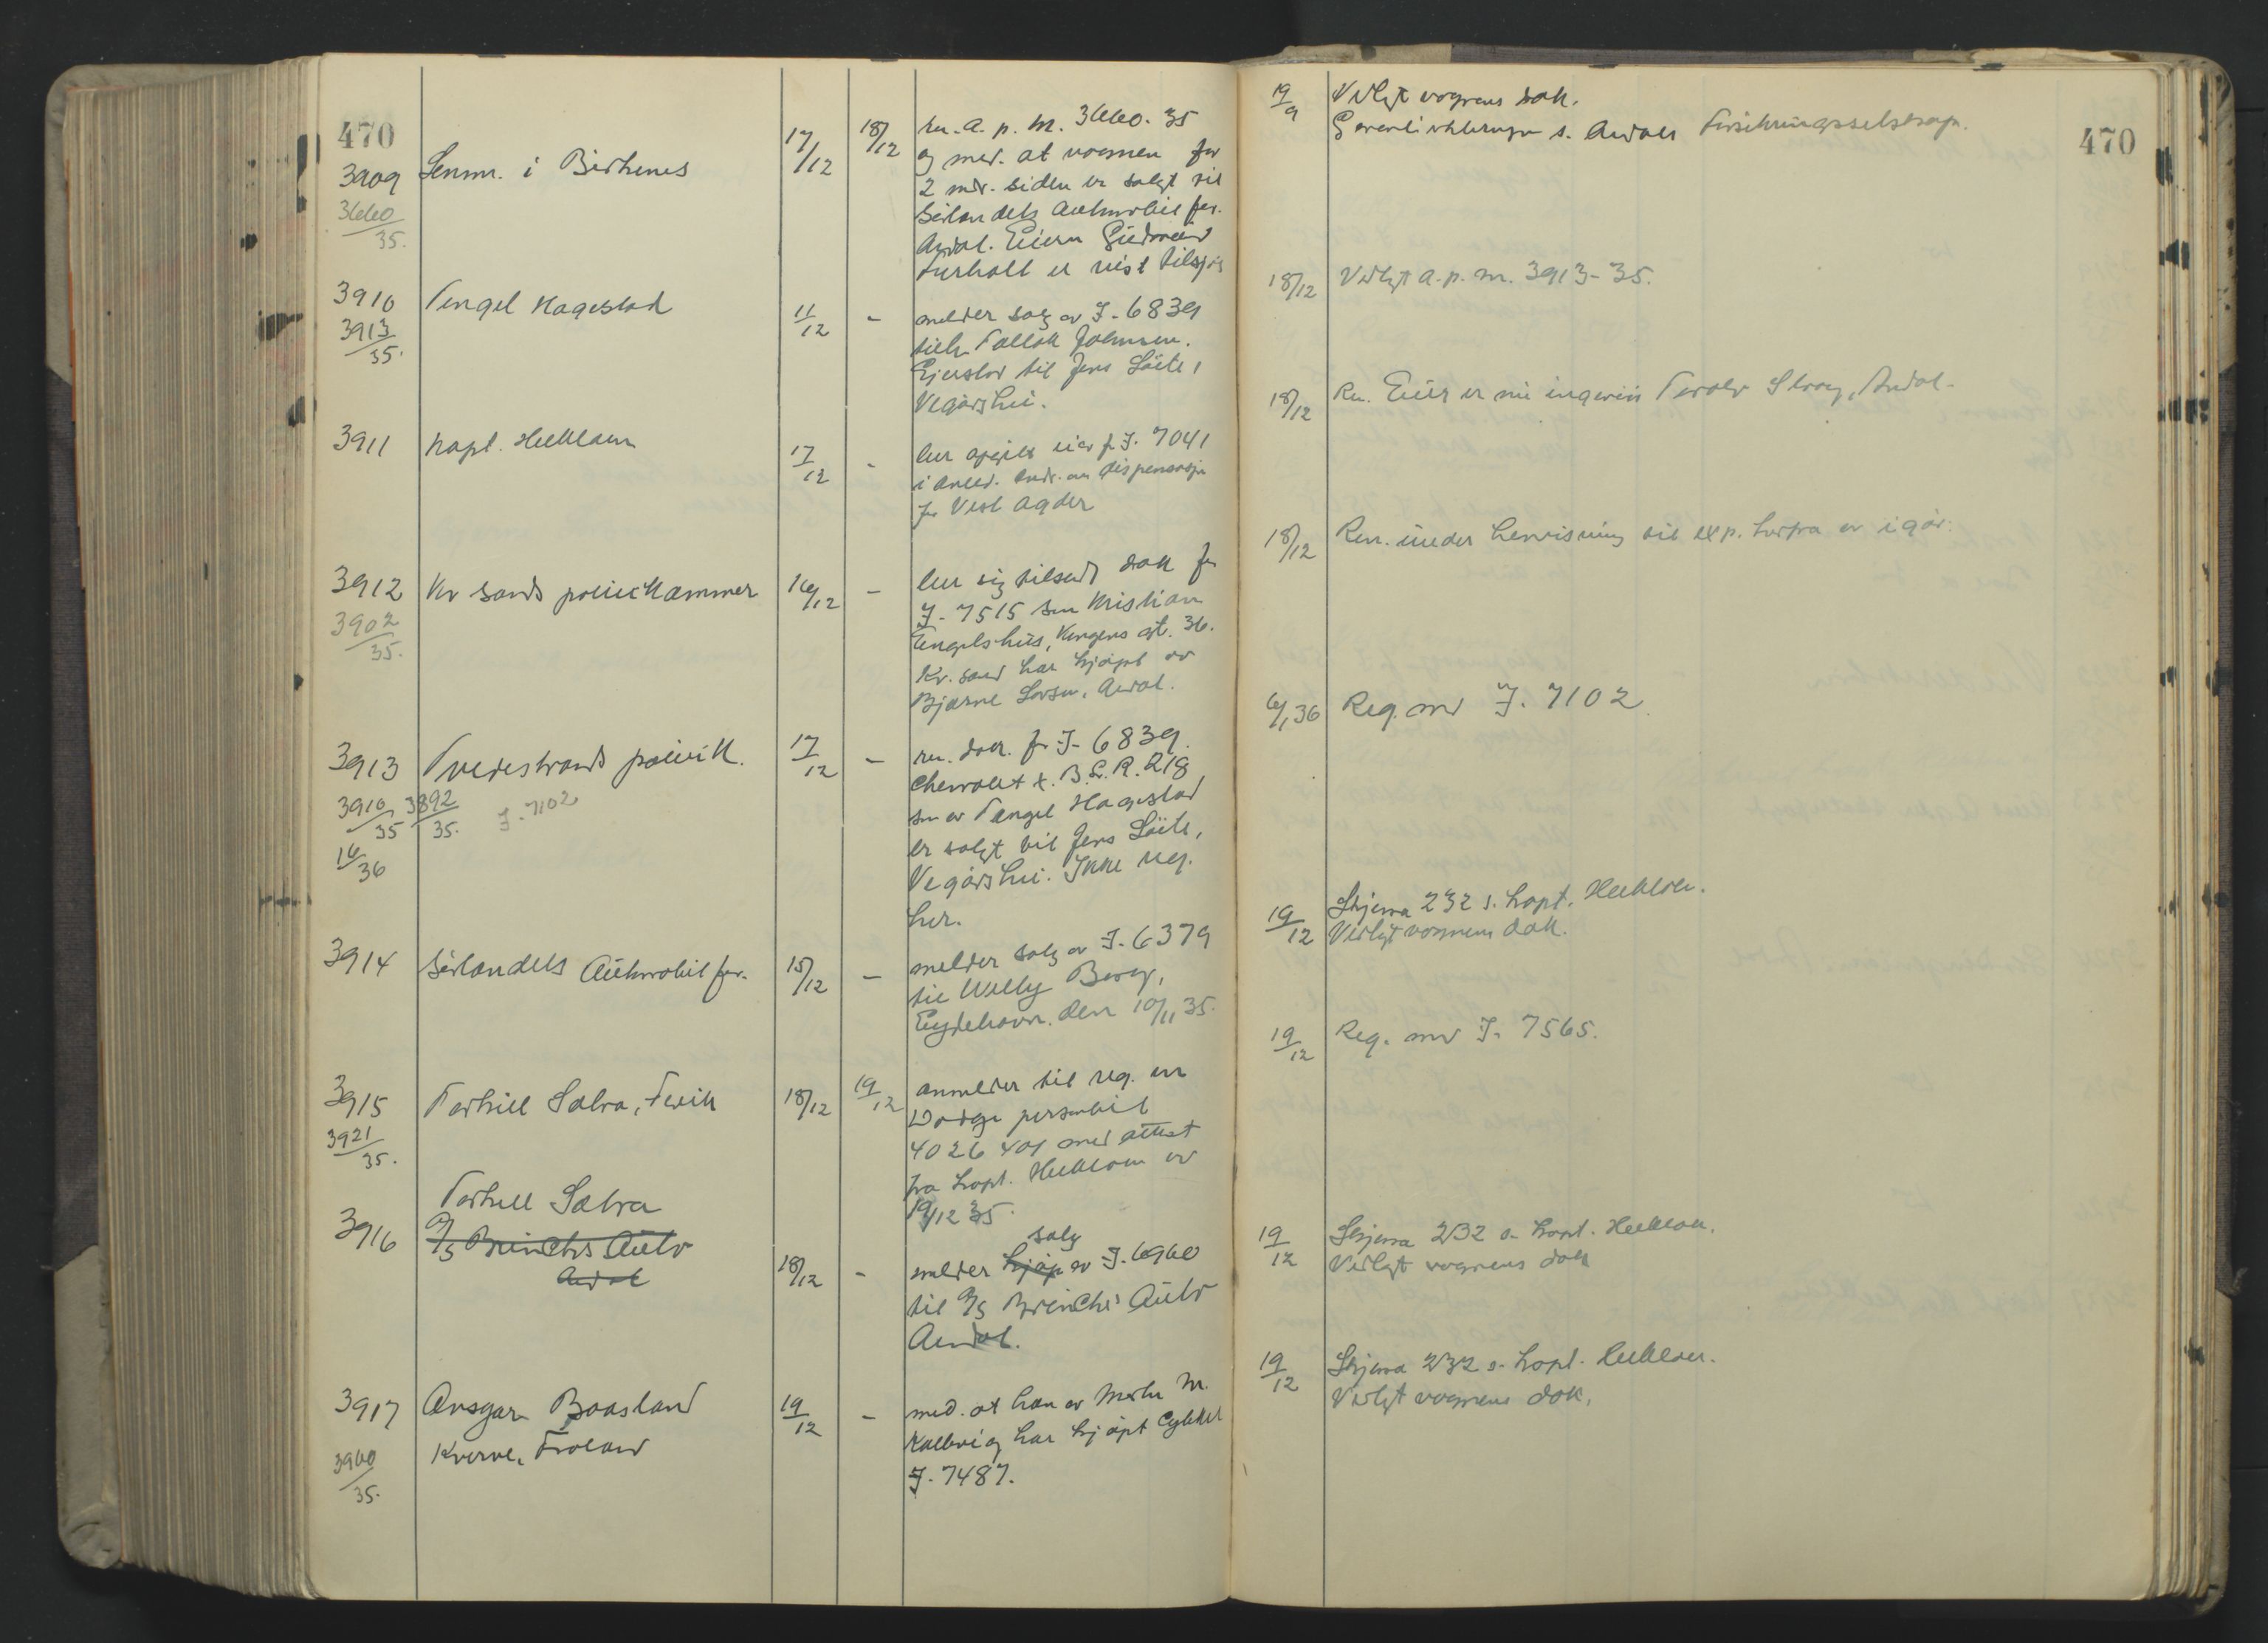 470
3909
3660
35.
Lensm. i Birkenes
17/12
18/12
ret. a. p. m. 3660. 35
og med. at vognen for
2 mdr. siden er solgt til
Sørlandets Automobil for.
Arendal. Eieren Gudmund
er reist tilsjøs
3910
3913
35.
Tengel Hagestad
11/12
-
melder salg av I-6839
til Tallak Johnsen.
til Jens Løite,
Vegårshei.
3911
Kapt. Heklaan
17/12
-
I. 7041
i anled. dispensasjon
fr Vest Agder
3912
3902
35.
Kr sands politikammer
16/12
-
ber sig tilsendt dok for
I. 7515 som Kristian
Engelshus, Kongens gt. 36.
Kr. sand har kjøpt av
Bjarne Larsen, Arendal.
3913
3910
35
3892
35.
16/36
Tvedestrands politik.
I-7102
17/12
-
ret. dok. for I-6839.
Chevrolet
som av Tengel Hagestad
er solgt til Jens Løite,
Vegårshei. Ikke reg.
her.
3914
Sørlandets Automobil for.
15/12
-
melder salg av I-6379
til Willy Berg,
Eydehavn. den 10/11 35.
3915
3921
35.
Torkill Salva, Fevik
18/12
19/12
anmelder til reg. en
Dodge personbil
4026 401 med attest
fra kapt. Heklaan av
19/12 35.
3916
Torkill Salva
A/S Brincks Auto
Arendal
18/12
-
salg
melder kjøp av I. 6960
til A/S Brincks Auto
Arendal.
3917
3960
35.
Ansgar Baasland
Froland
19/12
-
med. at han av
Kallevig har kjøpt Cykkel
I. 7487.
19/9
Vedlagt vognens dok.
Garantierklæringen s. Arendals Forsikringsselskap.
470
18/12
Vedlagt a. p. m. 3913-35.
18/12
Ret. Eier er nu ingeniør Torolv Stray, Arendal.
18/12
Ret. under henvisning til exp. herfra av igår.
6/1 36
Reg. med I. 7102
19/12
Skjema 232 s. kapt. Heklaan.
Vedlagt vognens dok.
19/12
Reg. med I. 7565.
19/12
Skjema 232 s. kapt. Heklaan.
Vedlagt vognens dok
19/12
Skjema 232 s. kapt. Heklaan.
Vedlagt vognens dok.